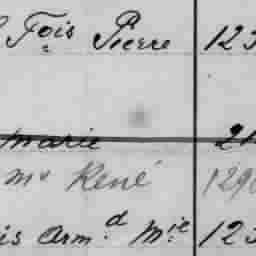 Fois Pierre 123
marie 21
mv René 129
is Arm.d Mie 123